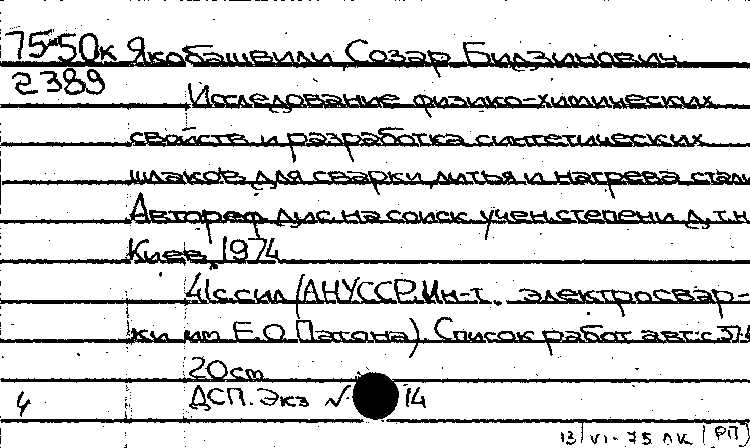 75-50к Якобашвили, Созар Бидзинович
2389
Исследование физико-химических
свойств и разработка синтетических
шлаков для сварки, литья и нагрева стали
Автореф. дис. на соиск. учен. степени д.т.н.
Киев, 1974
41 с. с ил. (АН УССР. Ин-т. электросвар-
ки им Е.О. Патона). Список работ авт.: с. 37-
20 см
4 ДСП. Экз № 14
13/VI-75 ЛК (РП)